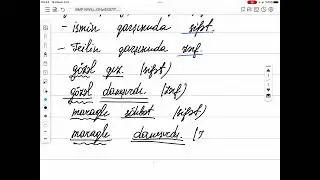 - ismin qarşısında sifət.
- Feilin qarşısında zərf.
gözəl qız. (sifət)
gözəl danışırdı. (zərf)
maraqlı söhbət (sifət)
maraqlı danışırdı. (z